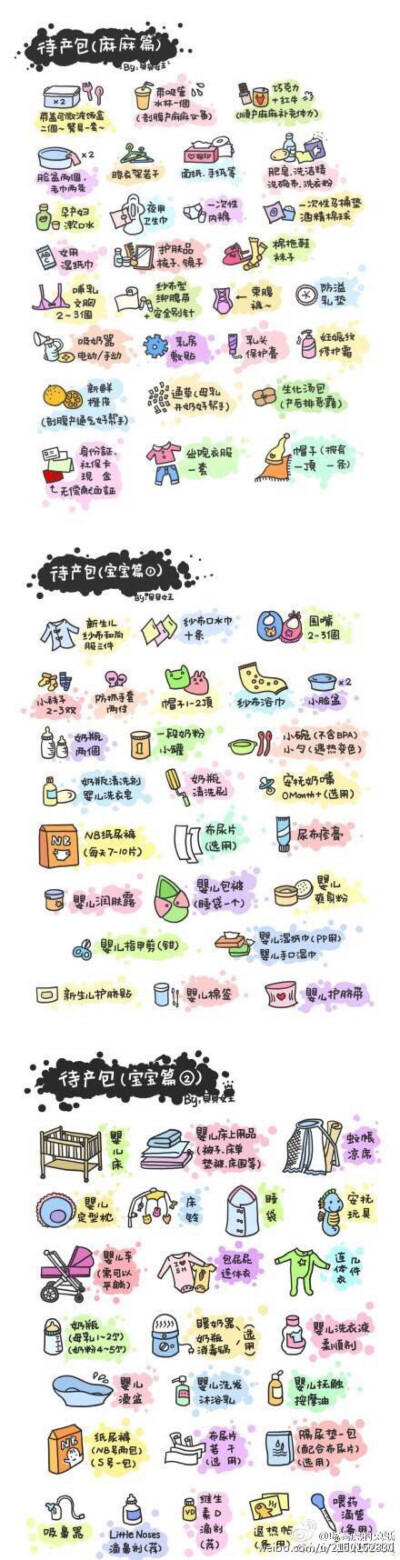 待产包(麻麻篇)
By:貝貝女王
×2
带盖可微波饭盒
二個~餐具一套~
带吸管
水杯一個
(剖腹产麻麻必备)
巧克力
+红牛
(順产麻麻补充体力)
×2
脸盆两個,
毛巾两条
晾衣架若干
面纸、手纸等
肥皂,洗洁精
洗碗布、洗衣粉
孕产妇
漱口水
夜用
卫生巾
一次性
内裤
一次性马桶垫
酒精棉球
女用
湿纸巾
护肤品
梳子、镜子
棉拖鞋
袜子
哺乳
文胸
2-3個
纱布型
绑腹带
+安全别针
束腹
裤~
防溢
乳垫
吸奶器
电动/手动
乳房
敷贴
乳头
保护膏
妊娠纹
修护霜
新鲜
橙皮
(剖腹产通气好帮手)
通草(母乳
开奶好帮手)
生化汤包
(产后排恶露)
身份証、
社保卡
現 金
无偿献血証
出院衣服
一套
一頂 一条)
待产包(宝宝篇①)
By:貝貝女王
新生儿
纱布和尚
服三件
纱布口水巾
十条
围嘴
2-3個
小袜子
2-3双
防抓手套
两付
帽子1-2頂
纱布浴巾
×2
小脸盆
奶瓶
两個
一段奶粉
小罐
小碗(不含BPA)
小勺(遇热变色)
奶瓶清洗剂
婴儿洗衣皂
奶瓶
清洗刷
安抚奶嘴
0Month+(选用)
NB
NB纸尿裤
(每天7-10片)
布尿片
(选用)
尿布疹膏
婴儿润肤露
婴儿包裤
(睡袋一个)
婴儿
爽身粉
婴儿指甲剪(钳)
婴儿湿纸巾(PP用)
婴儿手口湿巾
新生儿护脐贴
婴儿棉签
婴儿护脐带
待产包(宝宝篇②)
By:貝貝女王
婴儿床
婴儿床上用品
(被子、床单
垫褥、床围等)
蚊帳
凉席
婴儿
定型枕
床
铃
睡
袋
安抚
玩具
婴儿车
(需可以
平躺)
包屁屁
连体衣
连体衣
几件
奶瓶
(母乳1-2个)
(奶粉4-5个)
暖奶器
奶瓶
消毒锅
选用
婴儿洗衣液
柔順剂
婴儿
澡盆
婴儿洗发
沐浴乳
婴儿抚触
按摩油
NB
纸尿裤
(NB号两包)
(S号一包)
布尿片
若干
(选 用)
隔尿垫一包
(配合布尿片)
(选用)
吸鼻器
Little Noses
滴鼻剂(荐)
VD
维生
素D
滴剂
(荐)
退热帖
(备用)
喂药
滴管
(备用)